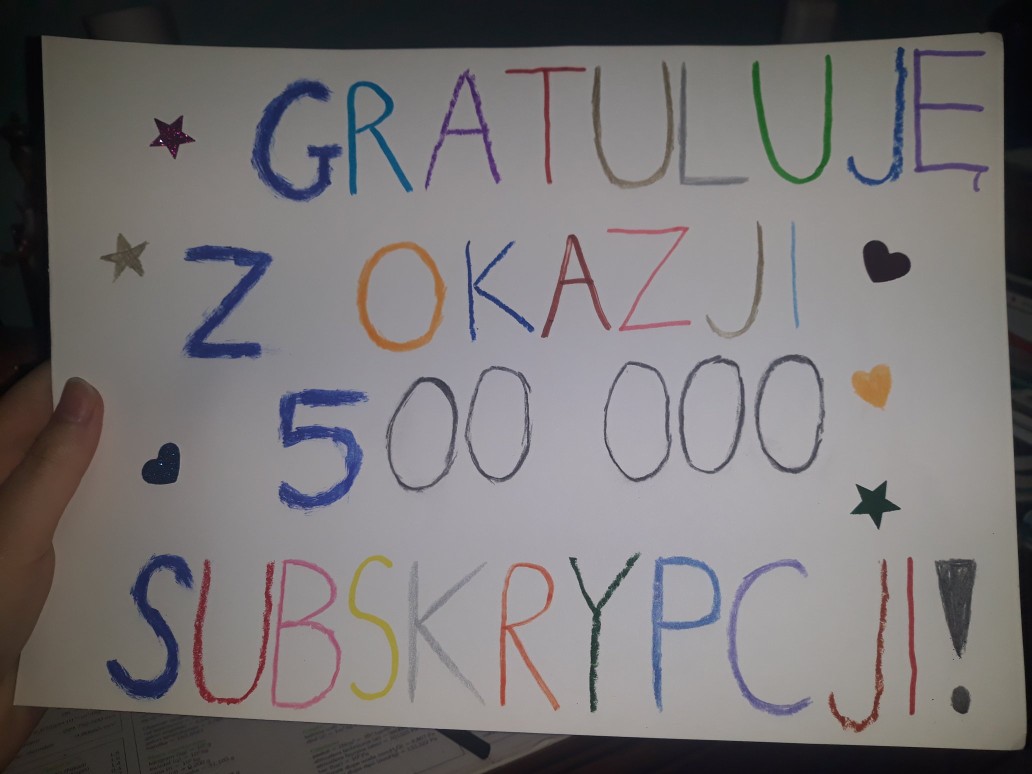 GRATULUJĘ
Z OKAZJI
500 000
SUBSKRYPCJI!